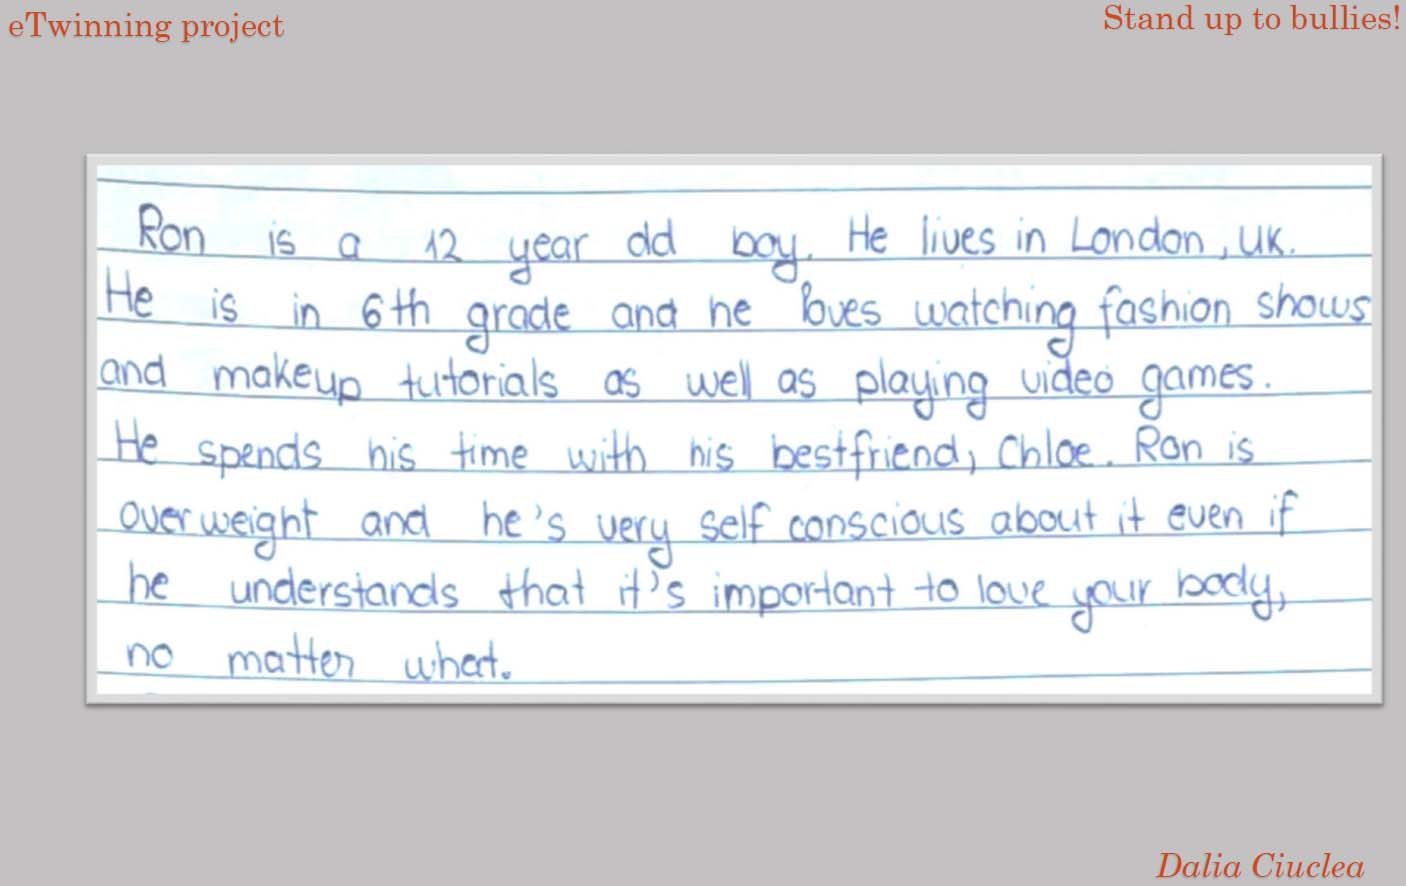 eTwinning project
Stand up to bullies!
Ron is a 12 year old boy. He lives in London, UK.
He is in 6th grade and he loves watching fashion shows
and makeup tutorials as well as playing video games.
He spends his time with his bestfriend, Chloe. Ron is
overweight and he's very self conscious about it even if
he understands that it's important to love your body,
no matter what.
Dalia Ciuclea